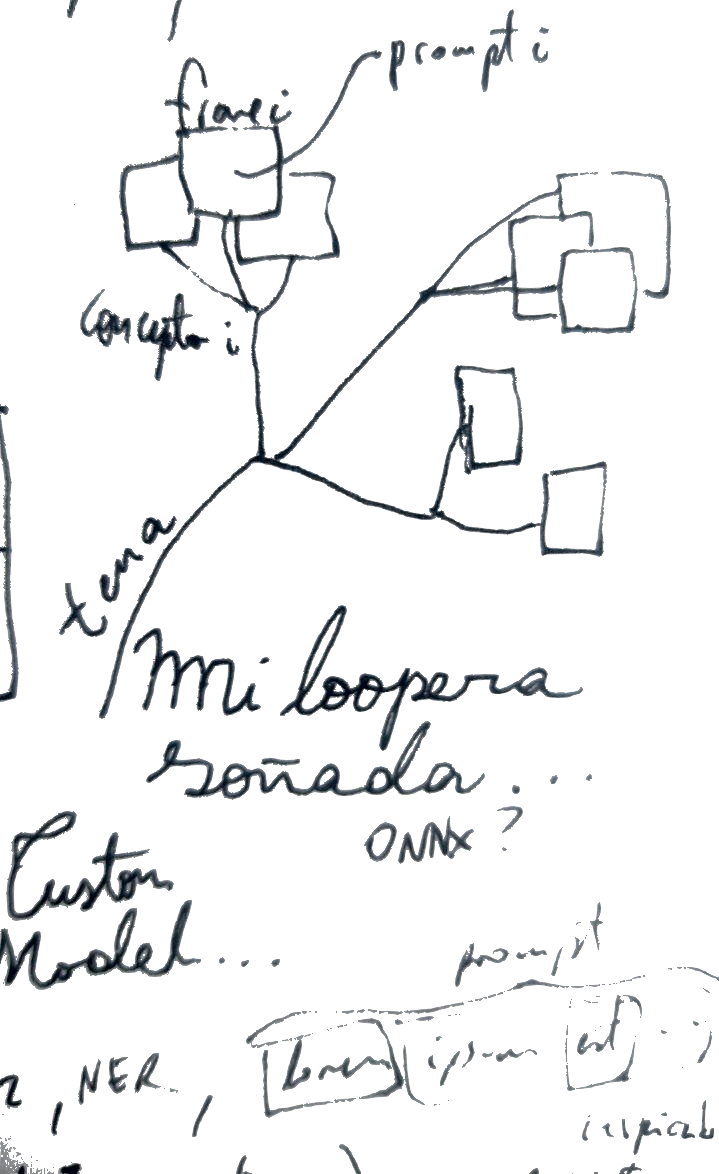 prompt i
frame i
concepto i
tema
Mi loopera
soñada...
ONNX?
Custom
Model...
prompt
, NER, lorem ipsum est ..